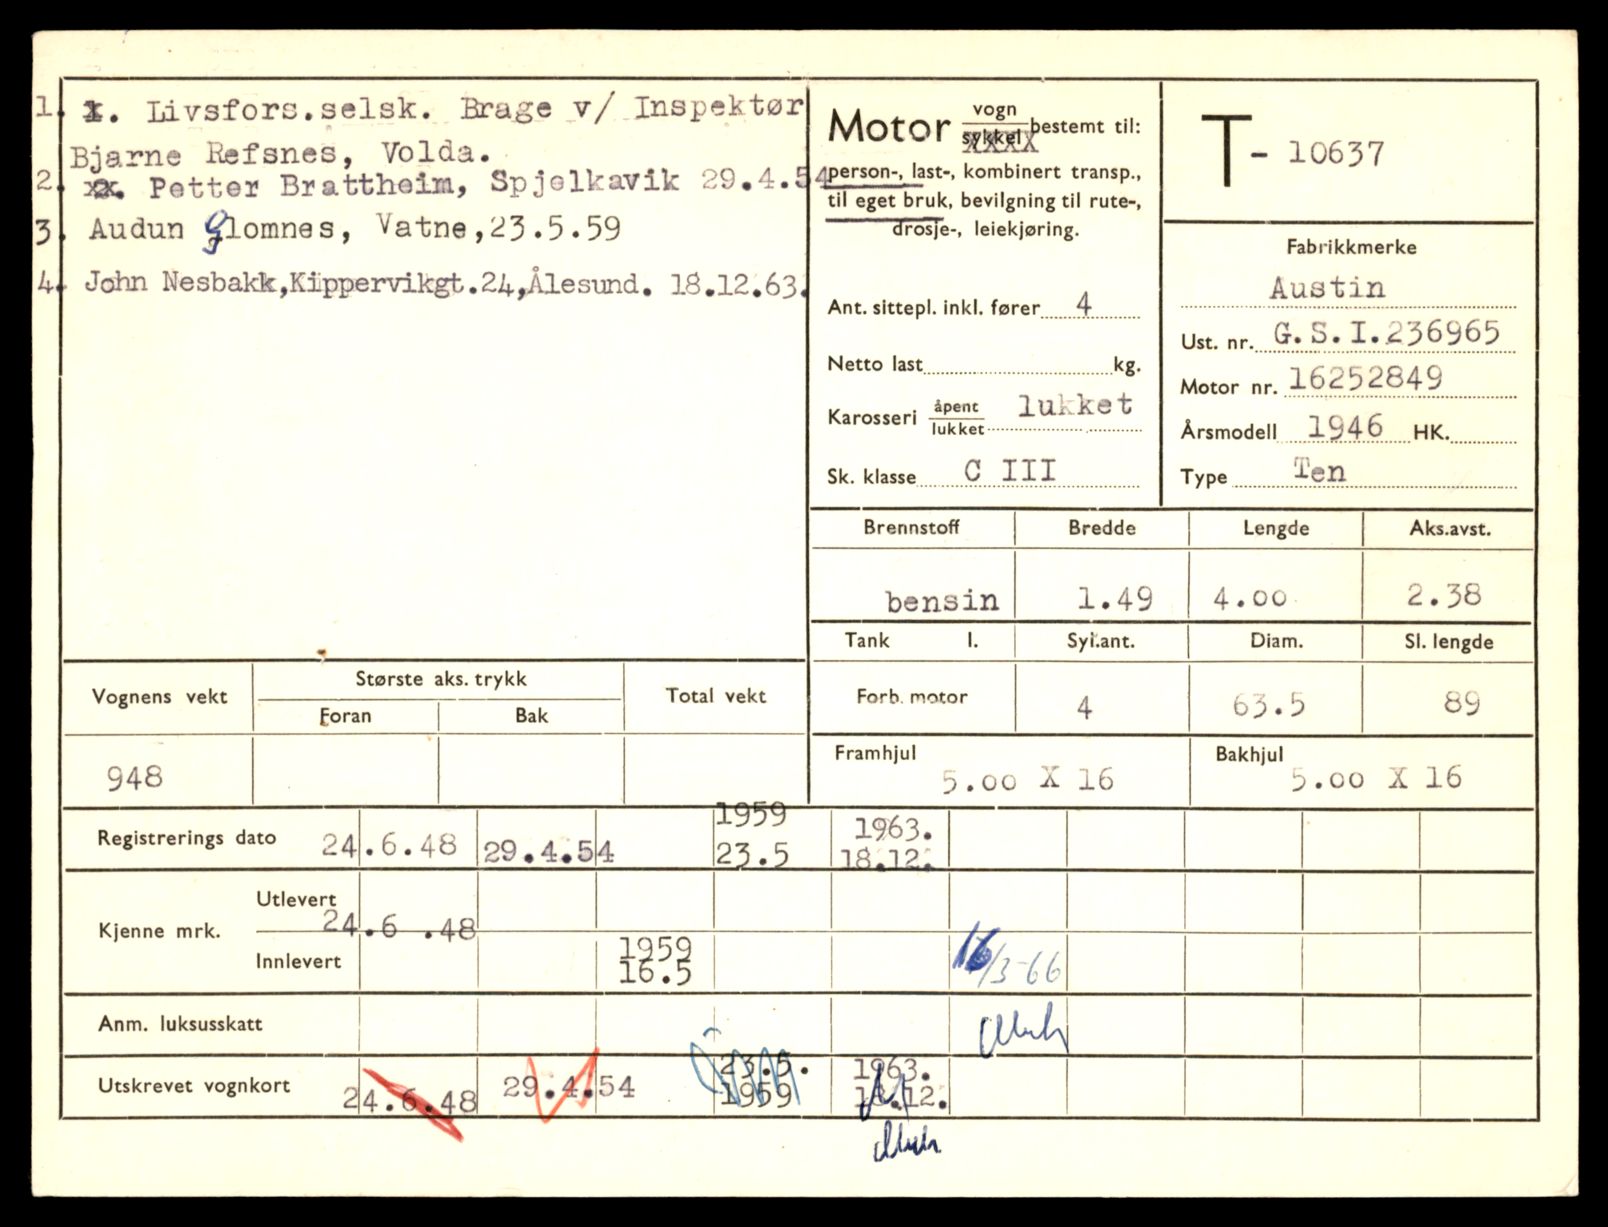 1. 1. Livsfors.selsk. Brage v/ Inspektør
Bjarne Refsnes, Volda.
2. xx. Petter Brattheim, Spjelkavik 29.4.54
3. Audun Glomnes, Vatne,23.5.59
4. John Nesbakk,Kippervikgt.24,Ålesund. 18.12.63.
Motor vogn
sykkel bestemt til:
person-, last-, kombinert transp.,
til eget bruk, bevilgning til rute-,
drosje-, leiekjøring.
Ant. sittepl. inkl. fører 4
Netto last kg.
Karosseri åpent lukket
lukket
Sk. klasse C III
T- 10637
Fabrikkmerke
Austin
Ust. nr. G.S.I.236965
Motor nr. 16252849
Årsmodell 1946 HK.
Type Ten
Brennstoff Bredde Lengde Aks.avst.
bensin 1.49 4.00 2.38
Tank l. Syl.ant. Diam. Sl. lengde
Forb. motor 4 63.5 89
Framhjul Bakhjul
5.00 X 16 5.00 X 16
Vognens vekt Største aks. trykk Total vekt
Foran Bak
948
1959 1963.
Registrerings dato 24.6.48 29.4.54 23.5 18.12.
Utlevert
Kjenne mrk. 24.6 .48
Innlevert 1959
16.5 16/3-66
Anm. luksusskatt
23.5. 1963.
Utskrevet vognkort 24.6.48 29.4.54 1959 18.12.